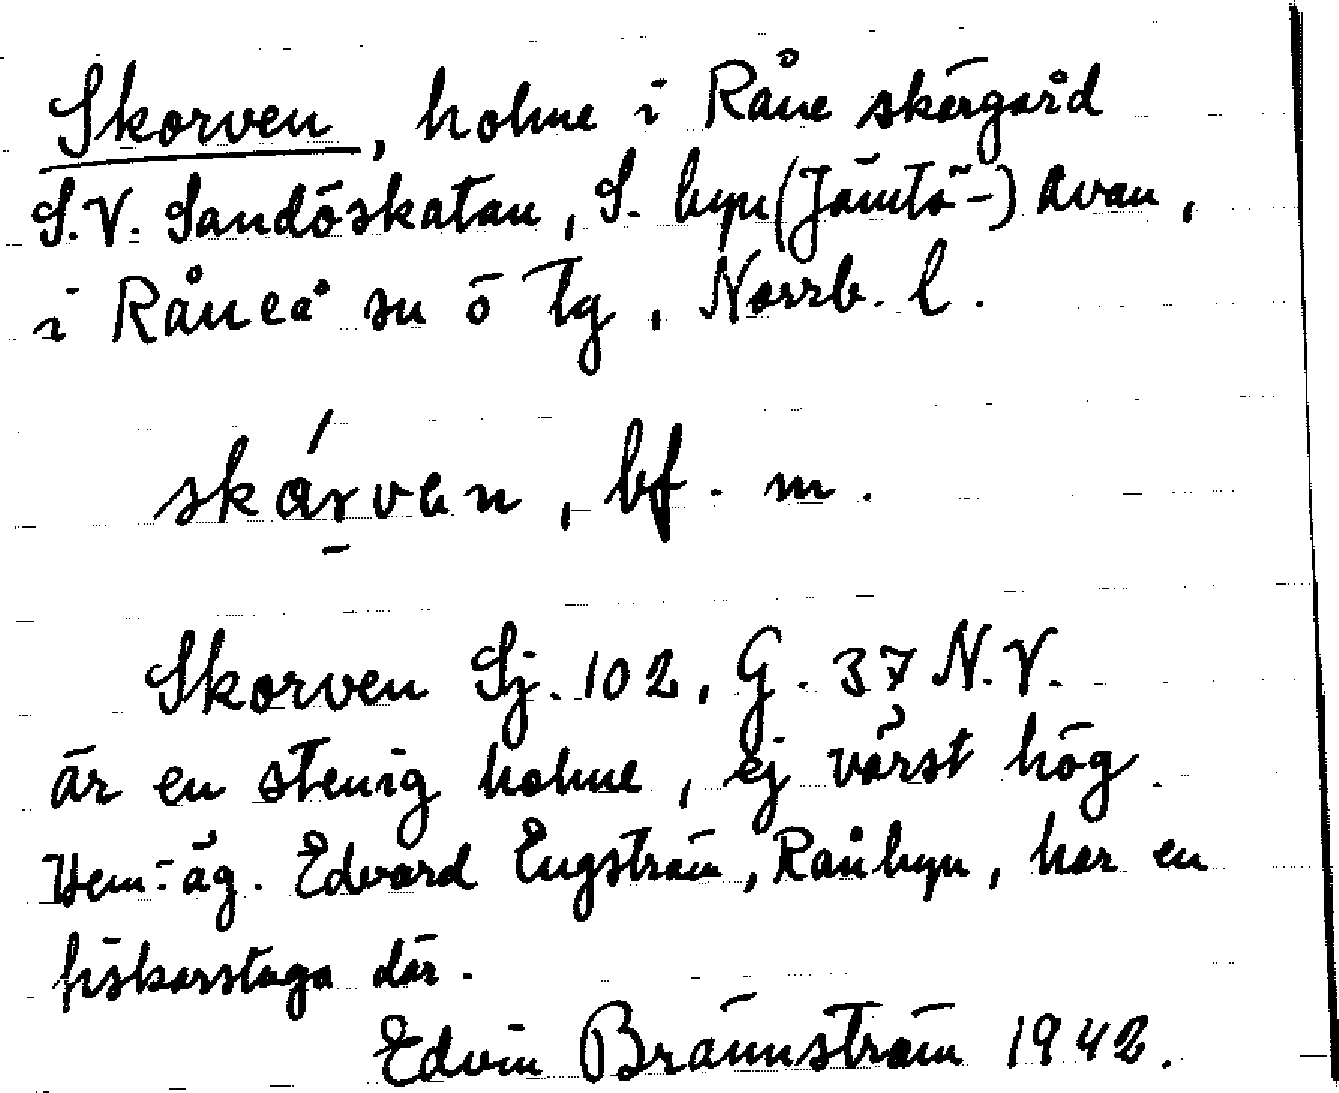 Skorven, holme i Råne skärgård
S.V. Sandöskatan, S. byn (Jämtö-) Avan,
i Råneå sn ö tg, Norrb. l.
skárven, bf. m.
Skorven Sj. 102, G. 37 N.V.
är en stenig holme, ej värst hög.
Hem.-äg. Edvard Engström, Rånbyn, har en
fiskarstuga där.
Edvin Brännström 1942.